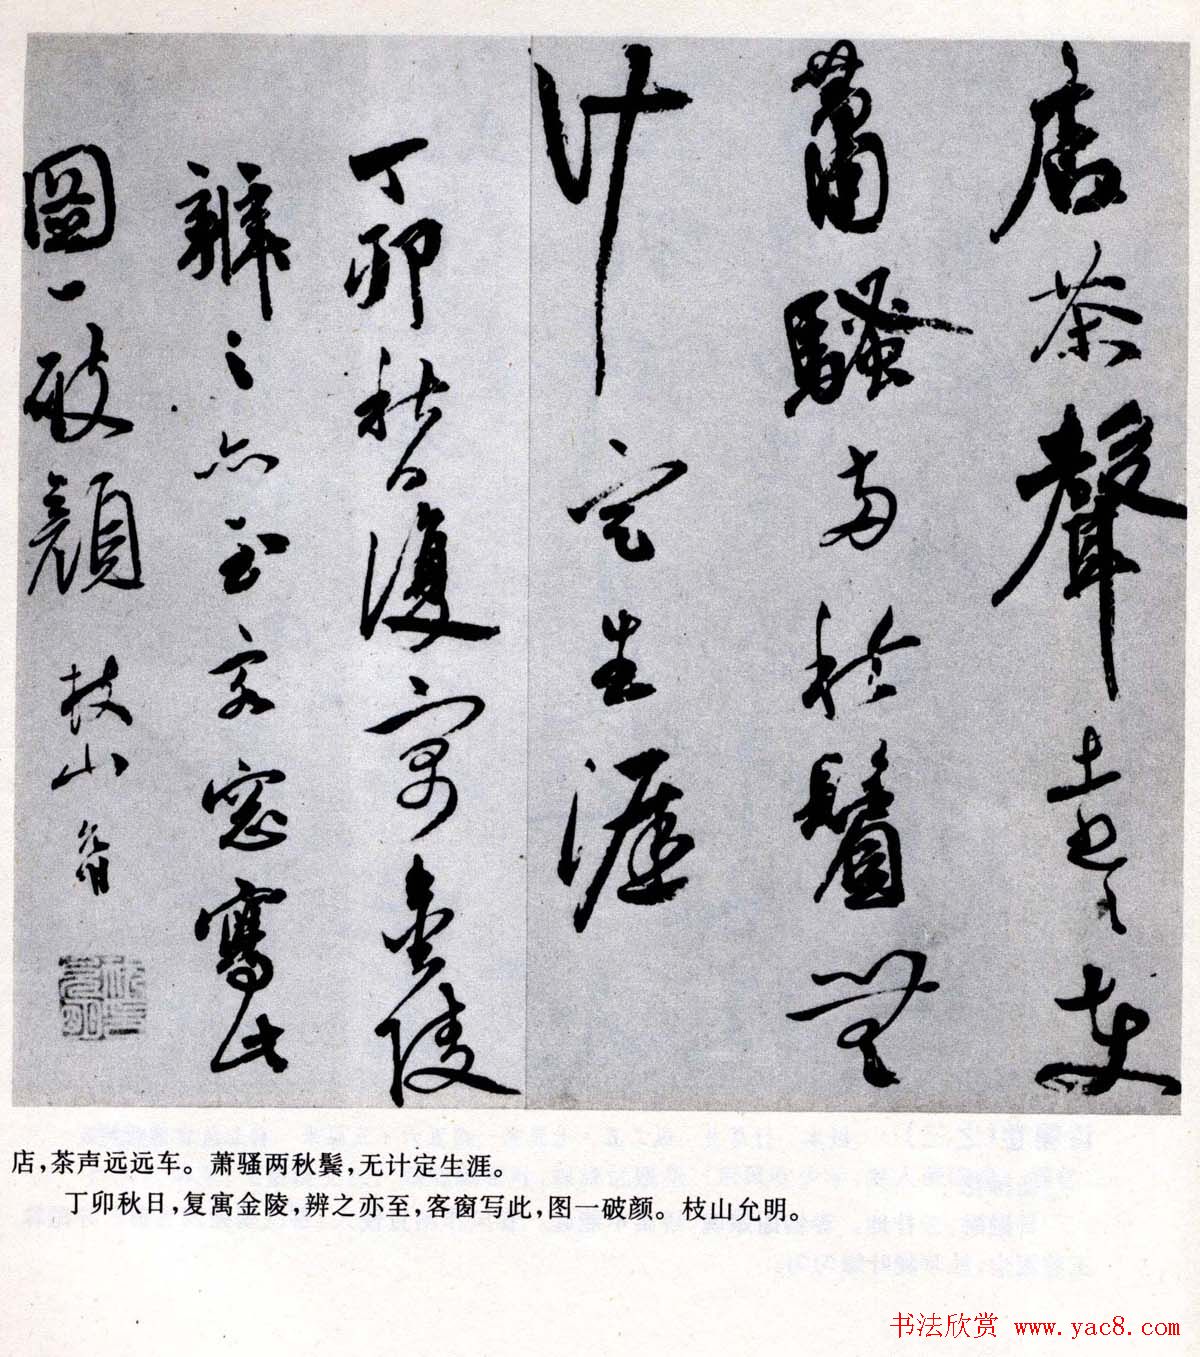 店茶聲遠〻車
蕭騷两秋鬢無
计定生涯
丁卯秋日復寓金陵
辨之亦至客窓寫此
圖一破顔 枝山允明
店,茶声远远车。萧骚两秋鬓,无计定生涯。
丁卯秋日,复寓金陵,辨之亦至,客窗写此,图一破颜。枝山允明。
书法欣赏 www.yac8.com